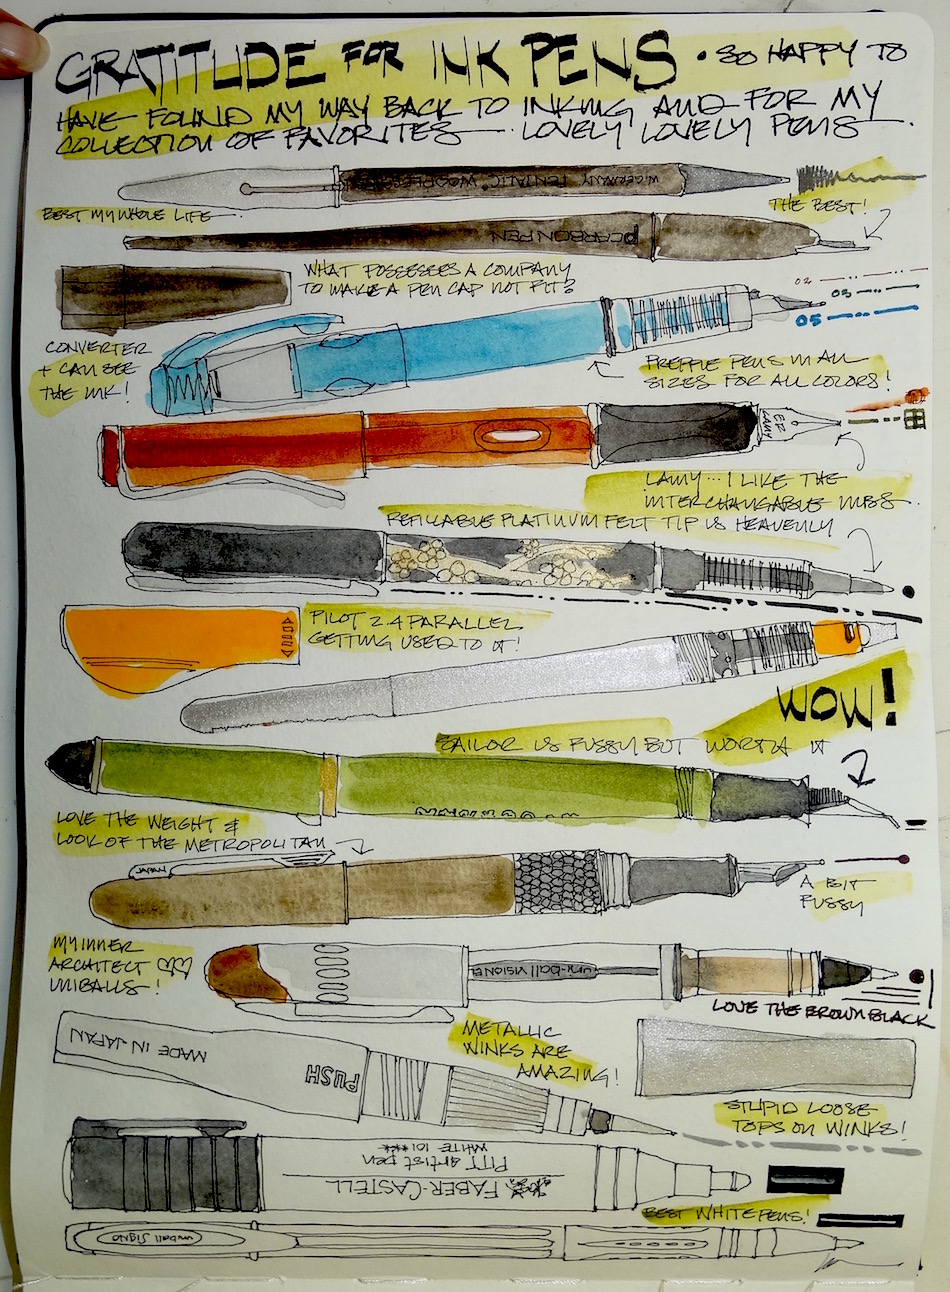 GRATITUDE FOR INK PENS • SO HAPPY TO
HAVE FOUND MY WAY BACK TO INKING AND FOR MY
COLLECTION OF FAVORITES — LOVELY LOVELY PENS —.
W.GERMANY PENTALIC WOODLESS
BEST MY WHOLE LIFE —
THE BEST!
CARBON PEN
WHAT POSSESSES A COMPANY
TO MAKE A PEN CAP NOT FIT?
02
03
05
CONVERTER
+ CAN SEE
THE INK!
PREPPIE PENS IN ALL
SIZES FOR ALL COLORS!
EF
LAMY
LAMY... I LIKE THE
INTERCHANGABLE NIBS.
REFILLABLE PLATINUM FELT TIP IS HEAVENLY
PILOT 2.4 PARALLEL
GETTING USED TO IT!
WOW!
SAILOR IS FUSSY BUT WORTH IT
LOVE THE WEIGHT &
LOOK OF THE METROPOLITAN
A BIT
FUSSY
MY INNER
ARCHITECT
UNIBALLS!
uni-ball VISION
LOVE THE BROWN BLACK
METALLIC
WINKS ARE
AMAZING!
MADE IN JAPAN
PUSH
STUPID LOOSE
TOPS ON WINKS!
PITT artist pen
WHITE 101***
FABER-CASTELL
BEST WHITE PENS!
uniball SIGNO